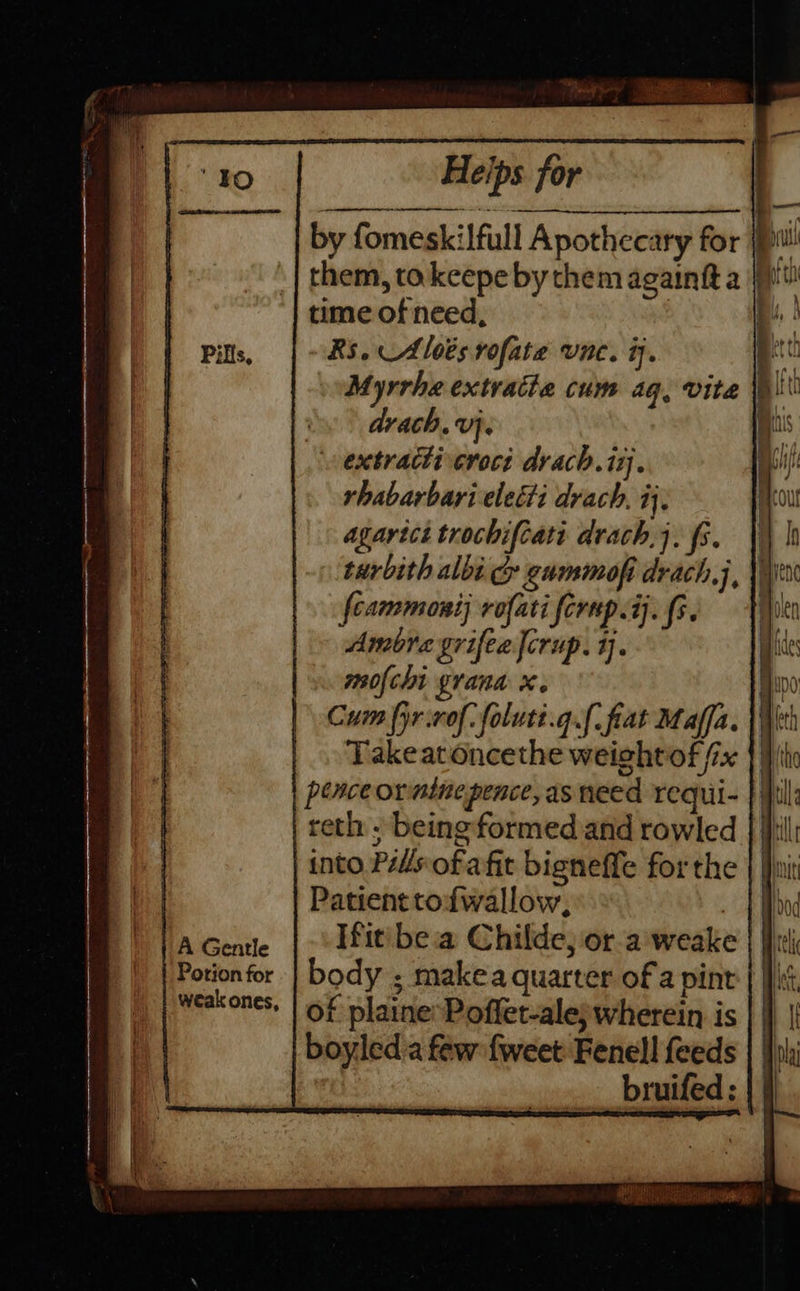 10
Helps for
by ſomeskilfull Apothecary for
them, to keepe by them againſt a
time of need,
Pills,
Rs. Aloës roſatæ vnc. ij.
Myrrhæ extractæ cum aq, vitæ
drach. vj.
extracti croci drach. iij.
rhabarbari electi drach. ij.
agarici trochiſcati drach. j. ſs.
turbith albi & gummoſi drach. j,
ſcammonij roſati ſcrup. ij. ſs.
Ambræ griſeæ ſcrup. ij.
moſchi grana x.
Cum ſyr. roſ. ſoluti. q. ſ. fiat Maſſa.
Take at once the weight of ſix
pence or nine pence, as need requi-
reth ; being formed and rowled
into Pills of a fit bigneſſe for the
Patient to ſwallow,
A Gentle
Potion for
weak ones,
If it be a Childe, or a weake
body ; make a quarter of a pint
of plaine Poſſet-ale, wherein is
boyled a few ſweet Fenell ſeeds
bruiſed :